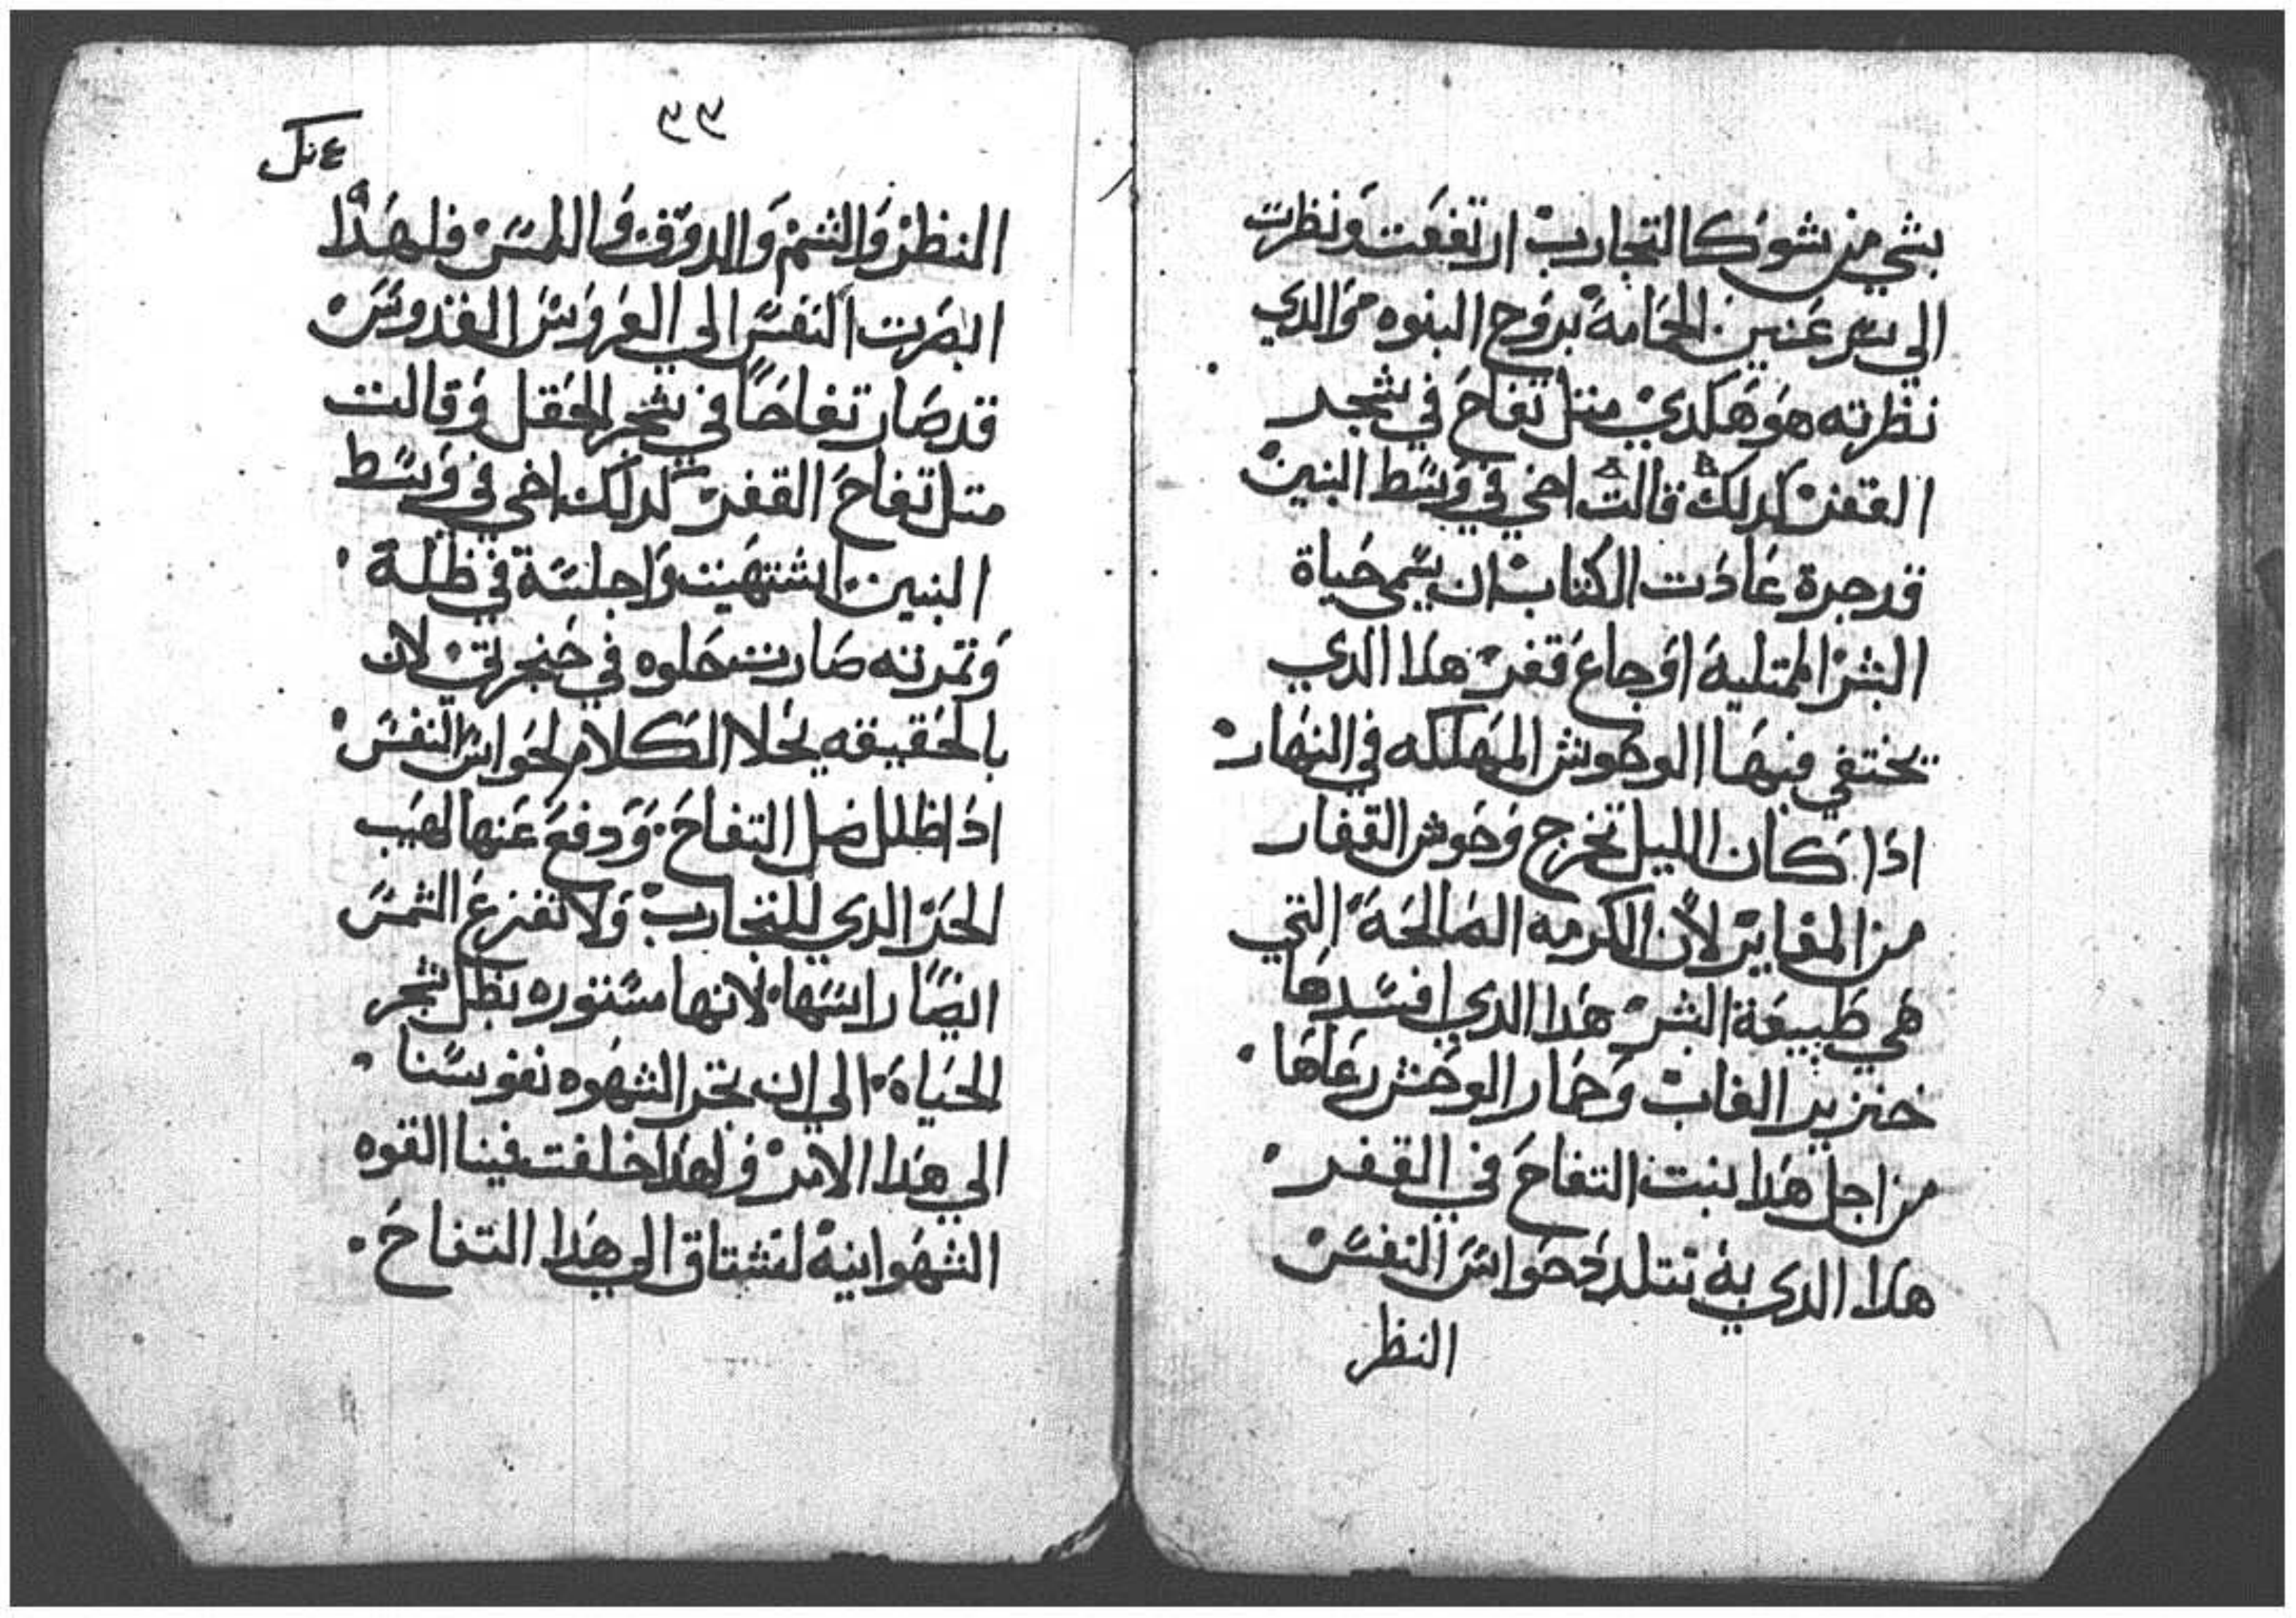 بشي من شوك التجارب ارتفعت ونظرت
الي بعر عنين الحمامة بروح البنوه والدي
نظرته هو هكدي متل تفاح في شجر
القفر كدلك قالت اخي في وسط البنين
قد جرة عادت الكتاب ان يسمي حياة
البشر الممتلية اوجاع قفر هدا الدي
يختفي فيها الوحوش المهلكه في النهار
ادا كان الليل تخرج وحوش القفار
من المغاير لان الكرمه الصالحة التي
هي طبيعة البشر هدا الدي افسدها
خنزير الغاب وحمار الوحش رعاها
من اجل هدا نبت التفاح في القفر
هدا الدي به تتلدد حواس النفس
النظر
٩٩
النظر والشم والدوق واللمس فلهدا
ابصرت النفس الي العروس القدوس
قد صار تفاحا في شجر الحقل وقالت
متل تفاح القفر كدلك اخي في وسط
البنين اشتهيت واجلسة في ظلة
وتمرته صارت حلوه في حنجرتي لان
بالحقيقه يحلا الكلام لحواس النفس
ادا ظلل ضل التفاح ودفع عنها لهيب
الحر الدي للتجارب ولا تفزع الشمس
ايضا راسها لانها مستوره بظل شجر
الحياة الي ان تخر الشهوه نفوسنا
الي هدا الامر ولهدا خلقت فينا القوه
الشهوانيه لتشتاق الي هدا التفاح